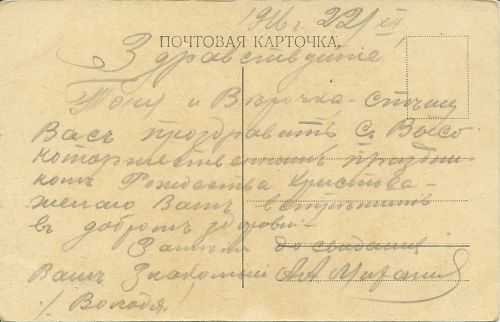 1916 г. 22/XII
ПОЧТОВАЯ КАРТОЧКА.
Здравствуйте!
Тоня и Вѣрочка, спѣшу
Васъ проздравить съ Высо
которжественнымъ праздни
комъ Рождества Христова –
желаю Вамъ встрѣтить
въ добромъ здоровьи –
Затѣмъ до свидания
Вашъ Знакомый
/ Володя!